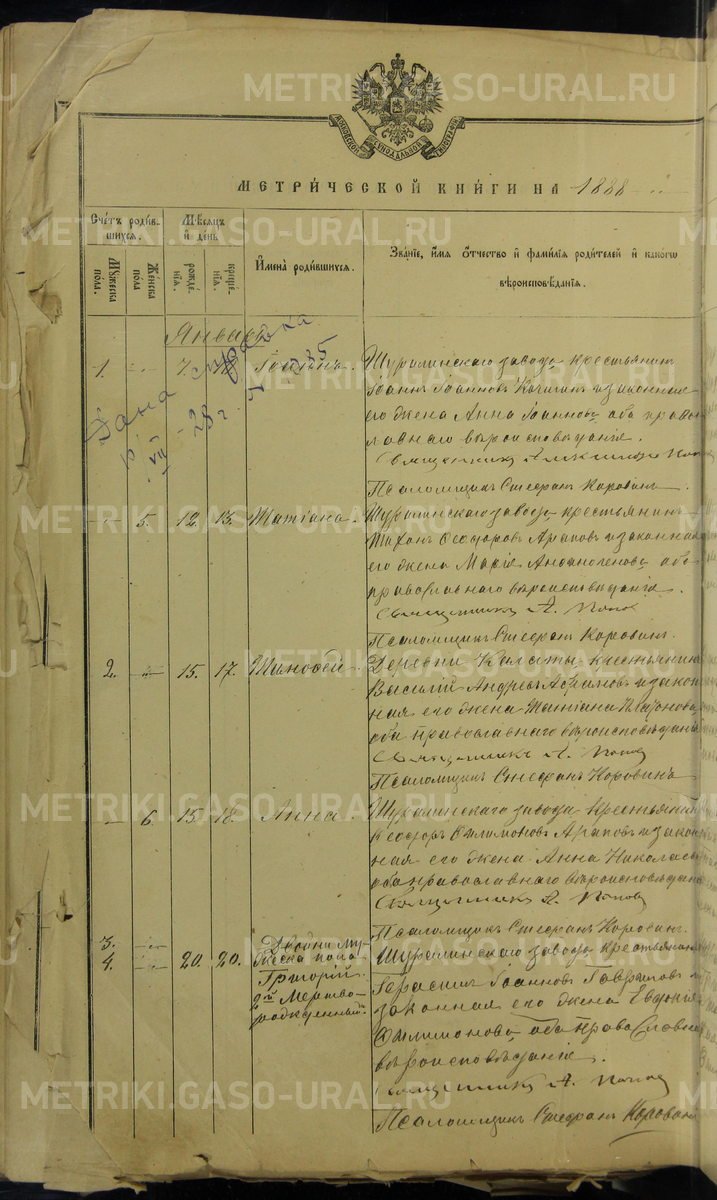 МОСКОВСКОЙ СѴНОДАЛЬНОЙ ТИПОГРАФІИ
МЕТРИ́ЧЕСКОЙ КНИ́ГИ НА 1888
Счетъ роди́вшихся.
Му́жеска пола.
Же́нска пола
Мѣсяцъ и́ день
рожде́нія.
креще́нія.
И́мена роди́вшихся.
Званіе, и́мя о́тчество и́ фами́лія родителей и́ какого вѣроисповѣданія.
Январь
Дана справка
1. 7. Іоаннъ.
Шуралинскаго завода крестьянинъ
Іоаннъ Іоанновъ и законная
его жена Анна Іоаннова оба право
славнаго вѣроисповѣданія.
Священникъ Александръ Поповъ
Псаломщикъ Стефанъ Коровинъ.
5. 12. 13. Татіана.
Шуралинскаго завода крестьянинъ
Ѳеодоровъ Араповъ и законная
его жена Марія оба
православнаго вѣроисповѣданія.
Священникъ А. Поповъ
Псаломщикъ Стефанъ Коровинъ.
2. 15. 17. Тимоѳей.
Деревни Калаты крестьянинъ
Василій Андреевъ и закон
ная его жена Татіана
оба православнаго вѣроисповѣданія
Священникъ А. Поповъ
Псаломщикъ Стефанъ Коровинъ
6. 15. 18. Анна.
Шуралинскаго завода крестьянинъ
Ѳеодоръ Филимоновъ Араповъ и закон
ная его жена Анна Николаева
оба православнаго вѣроисповѣданія
Священникъ А. Поповъ
Псаломщикъ Стефанъ Коровинъ.
3.
4. 20. 20.
Двойни му
жеска пола
Григорій
2й Мертво-
рожденный.
Шуралинскаго завода крестьянинъ
Герасимъ Іоанновъ Гавриловъ и
законная его жена Евдокія
Филимонова оба православна
вѣроисповѣданія.
Священникъ А. Поповъ
Псаломщикъ Стефанъ Коровинъ
METRIKI.GASO-URAL.RU